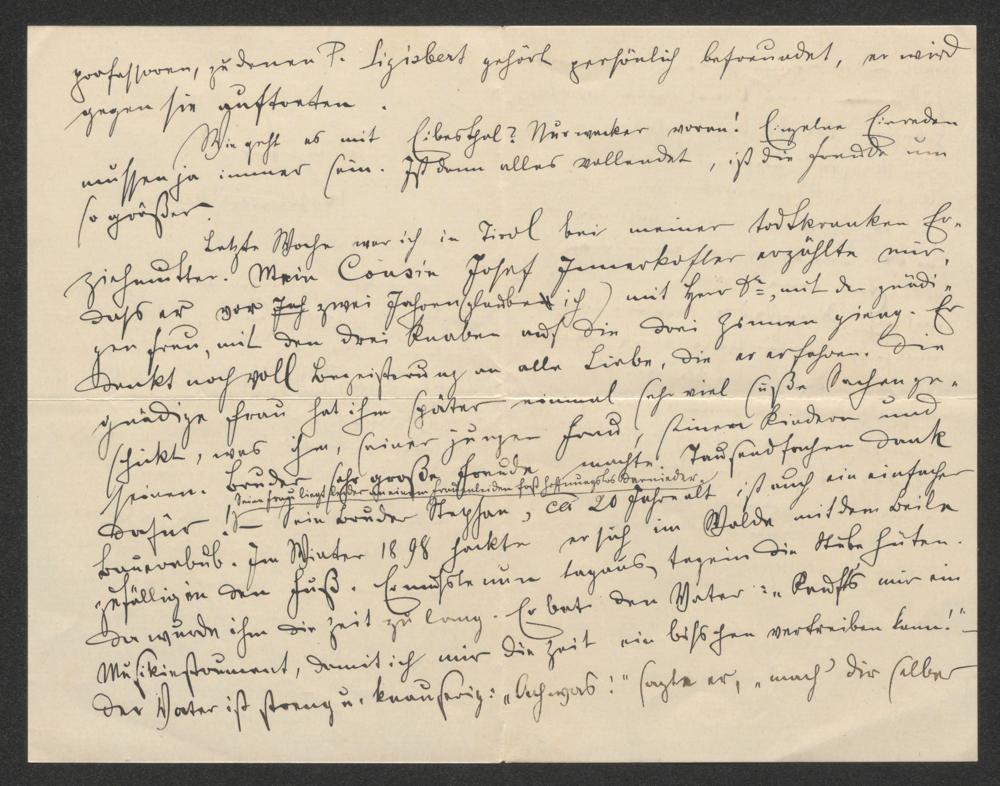 professoren, zu denen P. Sigisbert gehört persönlich befreundet, er wird
gegen sie auftreten.
Wie geht es mit Eibesthal? Nur wacker voran! Einzelne Einreden
müssen ja immer sein. Ist dann alles vollendet, ist die Freude um
so größer.
Letzte Woche war ich in Tirol bei meiner todtkranken Er-
ziehmutter. Mein Cousin Josef Innerkofler erzählte mir,
dass er vor Jah zwei Jahren (glaube ich) mit Herr Dr., mit der gnädi-
gen Frau, mit den drei Knaben auf die drei Zinnen gieng. Er
denkt noch voll Begeisterung an alle Liebe, die er erfahren. Die
gnädige Frau hat ihm später einmal sehr viel süße Sachen ge-
schickt, was ihm, seiner jungen Frau, seinen Kindern und
seinen Bruder sehr große Freude machte. Tausendfachen Dank
Seine Frau liegt leider an einem Frauenleiden fast hoffnungslos darnieder.
dafür! – Sein Bruder Stephan, ca 20 Jahre alt, ist auch ein einfacher
Bauernbub. Im Winter 1898 hackte er sich im Walde mit dem Beile
zufällig in den Fuß. Er musste nun tagaus, tagein die Stube hüten.
Da wurde ihm die Zeit zu lang. Er bat den Vater: „Kauft's mir ein
Musikinstrument, damit ich mir die Zeit ein bisschen vertreiben kann!" –
Der Vater ist streng u. knauserig: „Ach was!" sagte er, „mach' dir selber